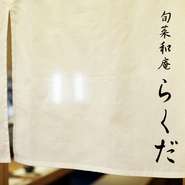 旬菜和庵
らくだ